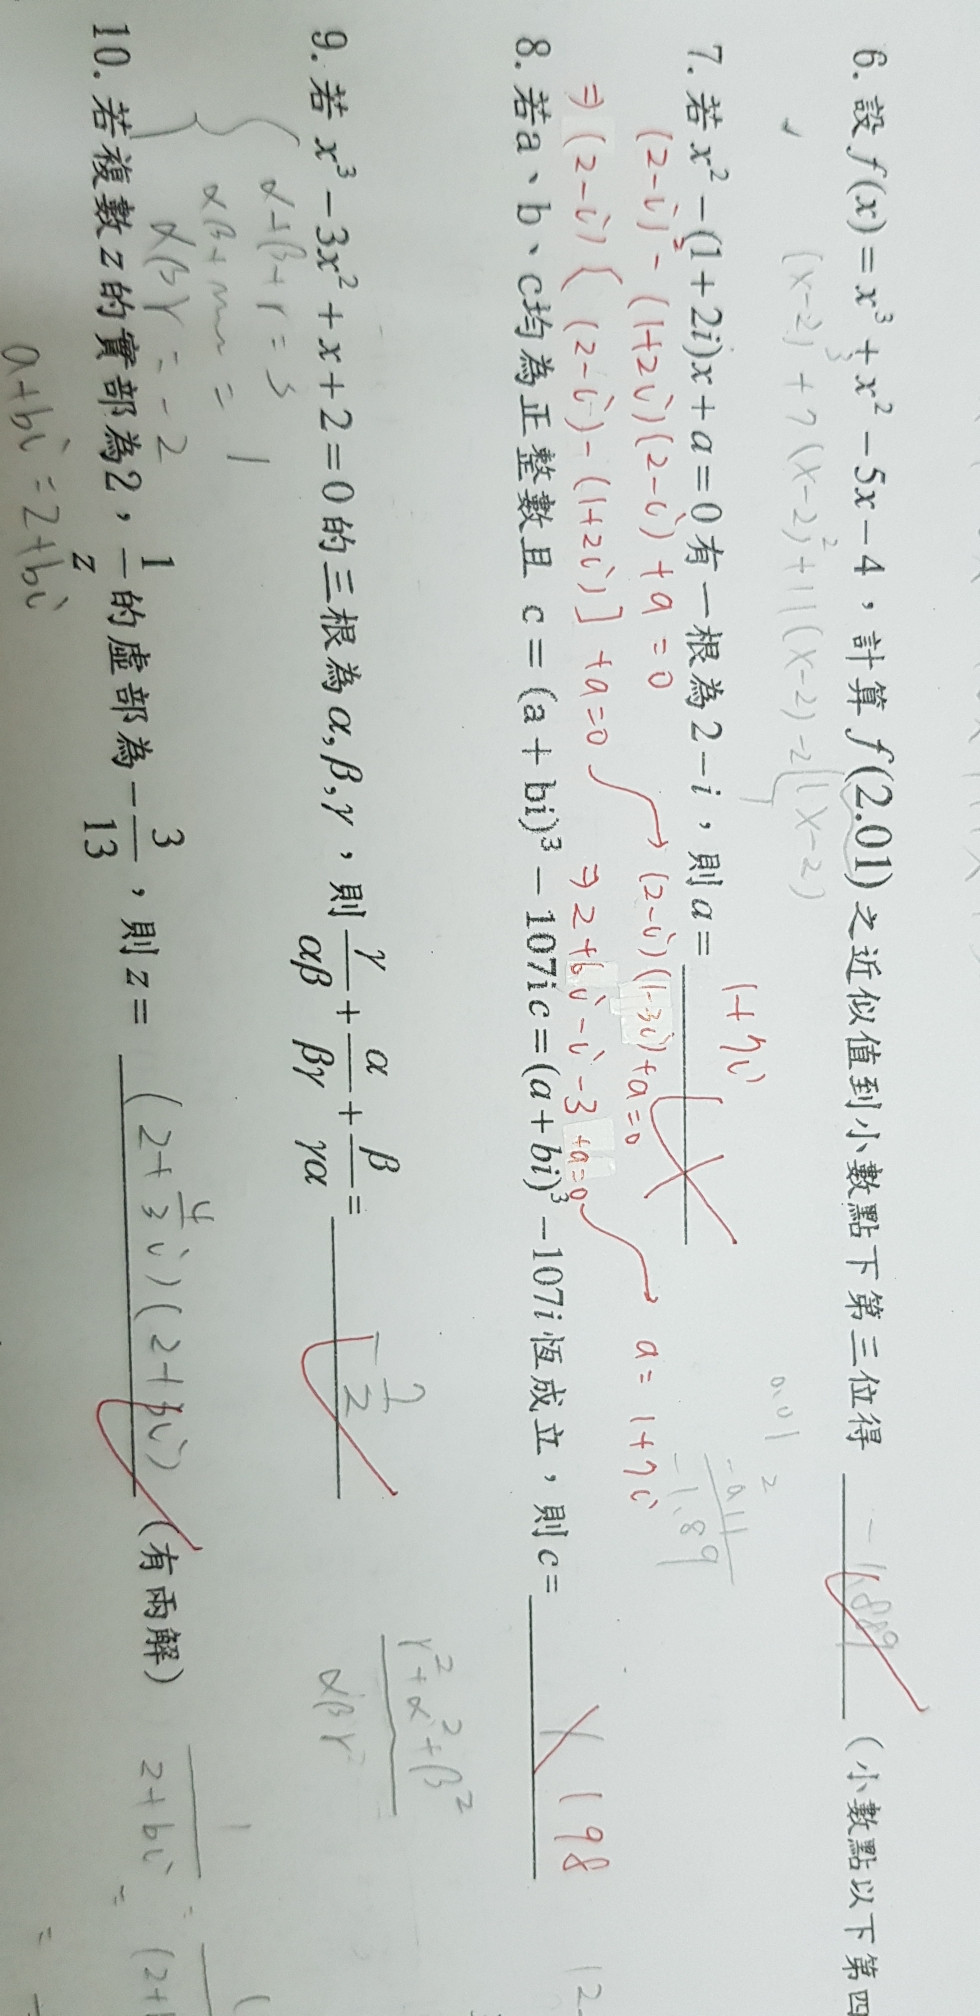 6. 設 f(x) = x³ + x² − 5x − 4，計算 f(2.01) 之近似值到小數點下第三位得 −1.889 (小數點以下第四
(x-2)³ + 7(x-2)² + 11(x-2) - 2
(x-2)
0.01
2
-0.11
-1.89
7. 若 x² − (1 + 2i)x + a = 0 有一根為 2 − i，則 a = 1+7i
(2-i)² - (1+2i)(2-i) + a = 0
→ (2-i)(1-3i) + a = 0
a = 1+7i
⇒ (2-i)[(2-i) - (1+2i)] + a = 0
⇒ 2 + 6i - i - 3 + a = 0
8. 若a、b、c均為正整數且 c = (a + bi)³ − 107i c = (a + bi)³ − 107i 恆成立，則 c = 198
γ² + α² + β²
αβγ
9. 若 x³ − 3x² + x + 2 = 0 的三根為 α, β, γ，則 γ/αβ + α/βγ + β/γα = -7/2
α+β+γ = 3
αβ+ = 1
αβγ = -2
10. 若複數 z 的實部為2，1/z 的虛部為 −3/13，則 z = (2+4/3 i)(2+3i) (有兩解)
1
2+bi =
(2+
a+bi = 2+bi